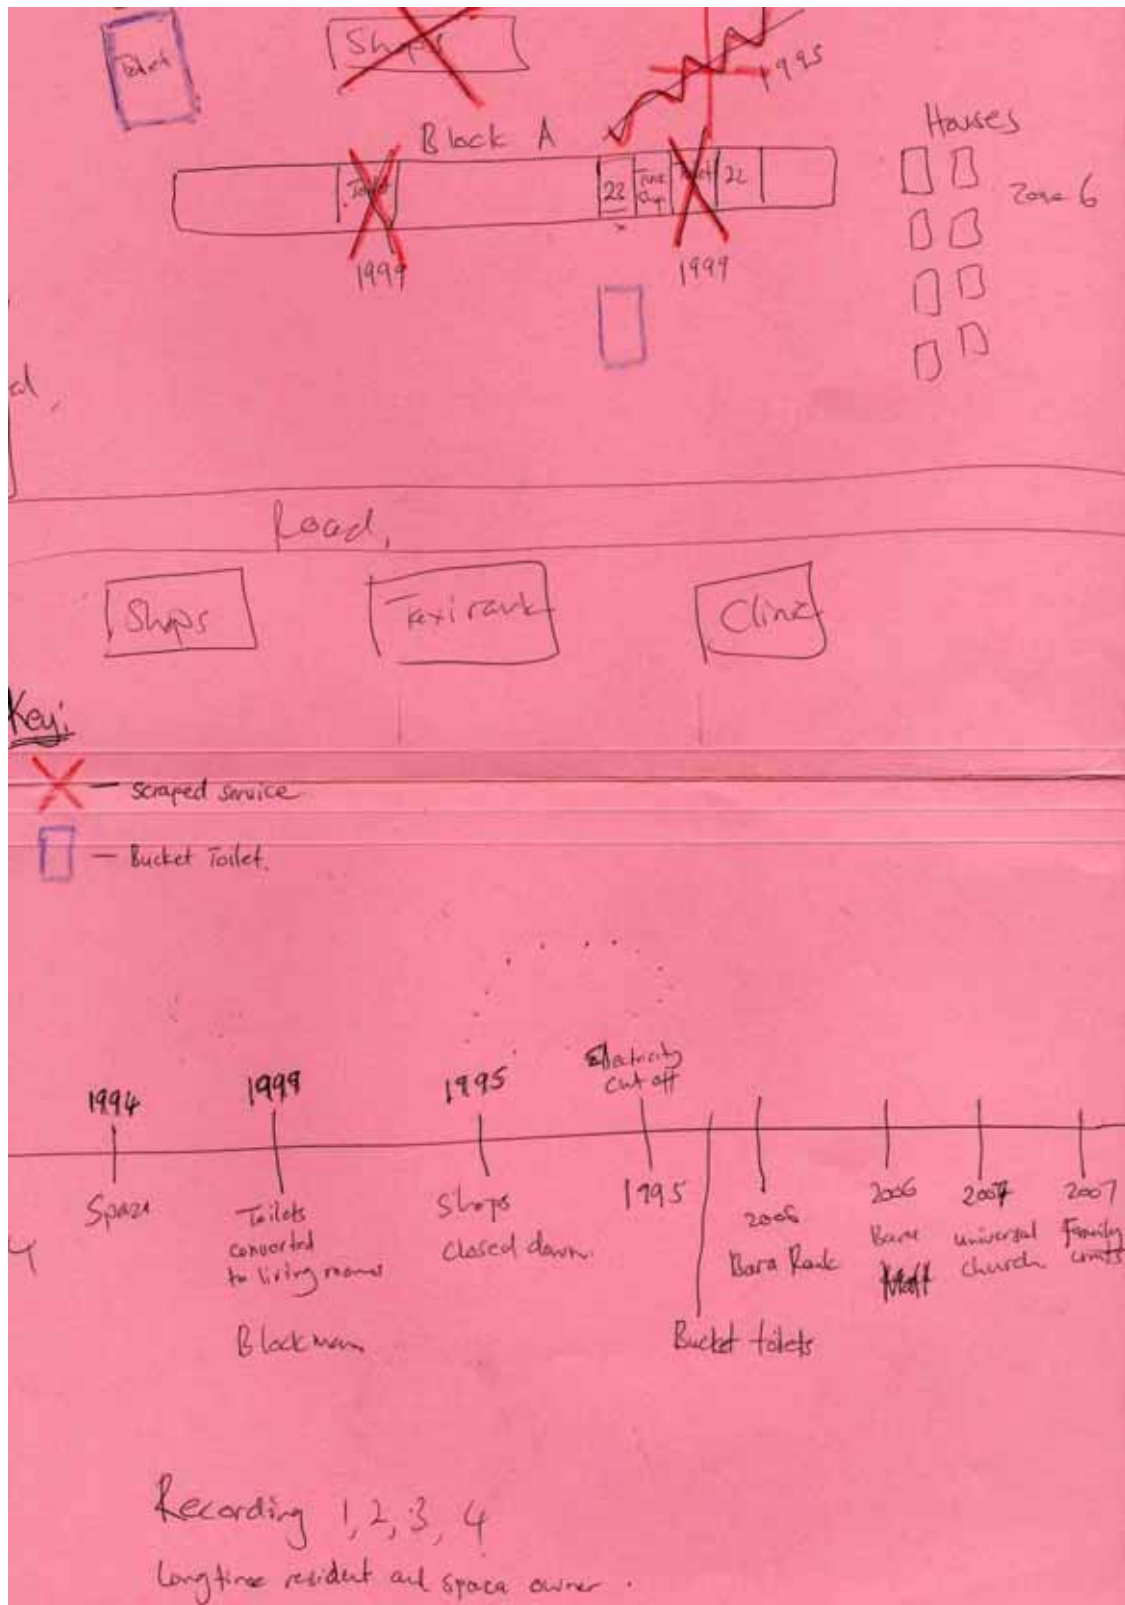 Toilet
Shops
1995
Block A
Houses
Toilet
23
Tuck
Shop
Toilet
22
Zone 6
1999
1999
Road,
Shops
Taxi rank
Clinic
Key:
— scraped service
— Bucket Toilet.
1994
1999
1995
Electricity
cut off
Spaza
Toilets
converted
to living rooms
Shops
closed down.
1995
2006
Bara Rank
2006
Bara
Mall
2007
universal
church
2007
Family
units
Blockman
Bucket toilets
Recording 1, 2, 3, 4
Longtime resident and spaca owner.